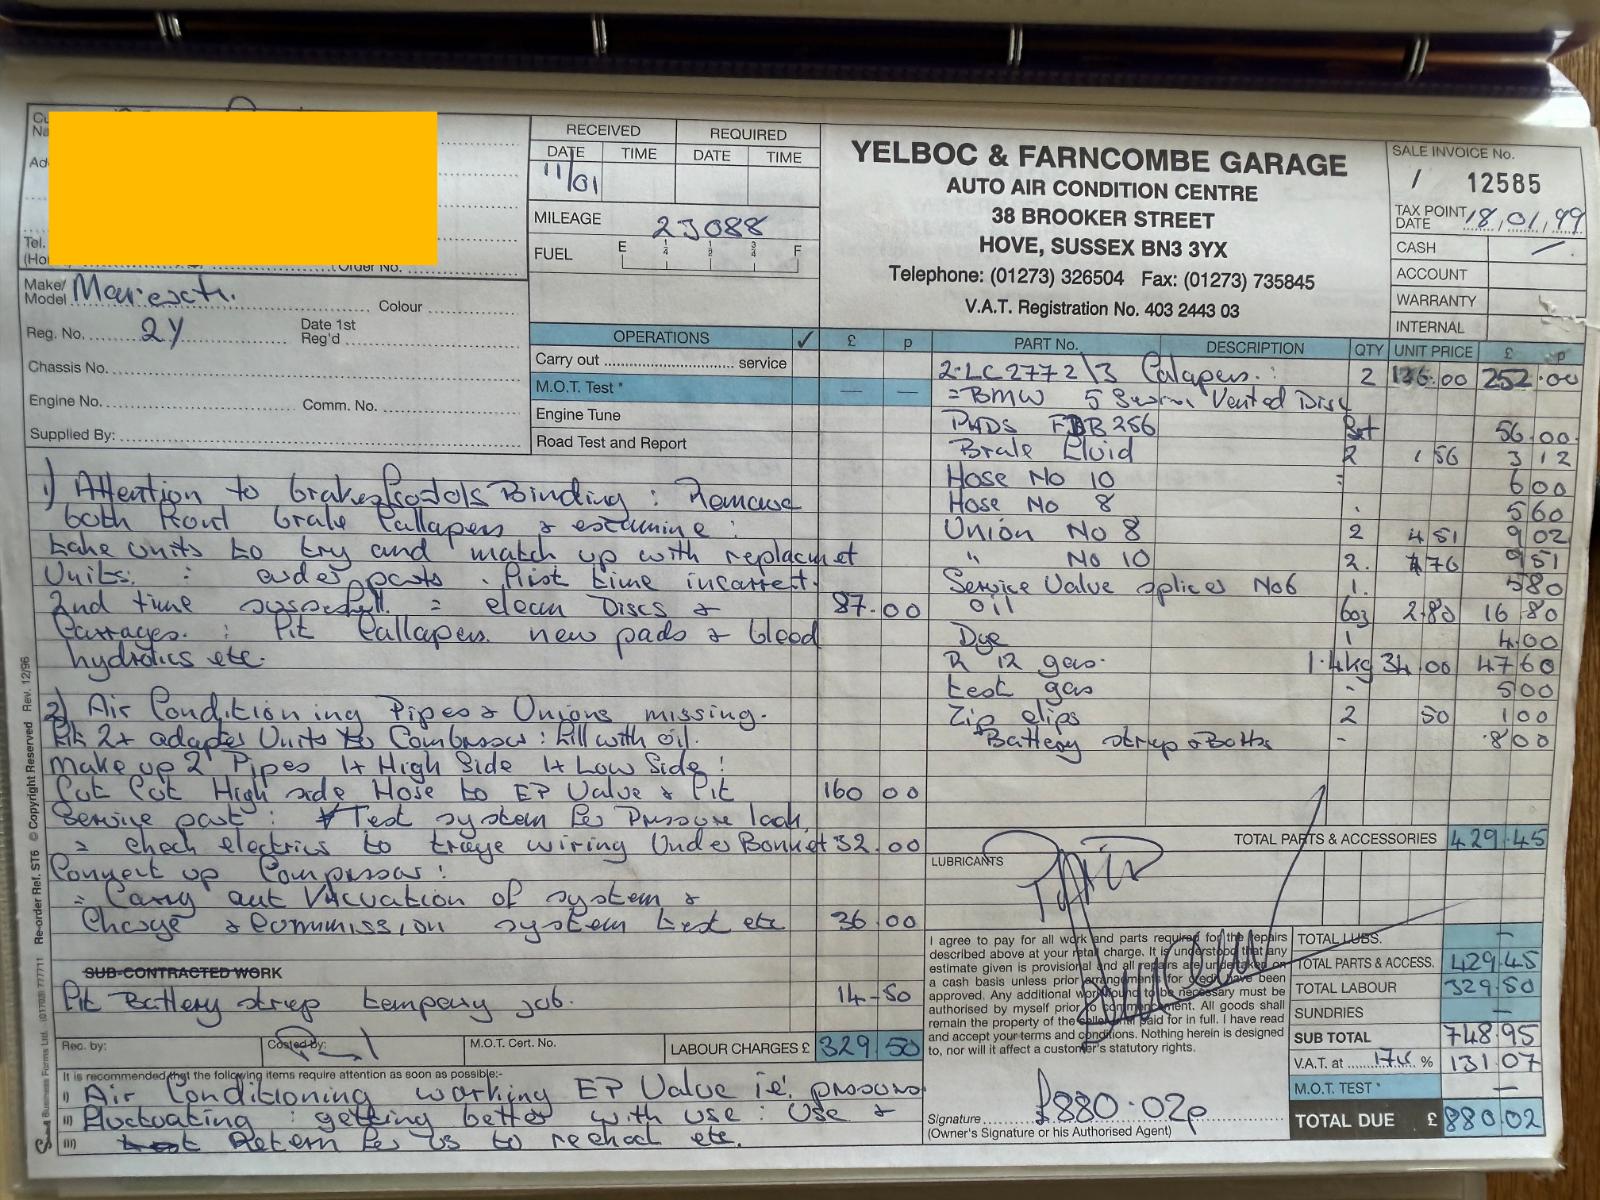 RECEIVED REQUIRED
DATE TIME DATE TIME
11/01
MILEAGE 23088
FUEL E 1/4 1/2 3/4 F
YELBOC & FARNCOMBE GARAGE
AUTO AIR CONDITION CENTRE
38 BROOKER STREET
HOVE, SUSSEX BN3 3YX
Telephone: (01273) 326504 Fax: (01273) 735845
V.A.T. Registration No. 403 2443 03
SALE INVOICE No.
/ 12585
TAX POINT DATE 18,01,99
CASH
ACCOUNT
WARRANTY
INTERNAL
Tel.
Order No.
Make/ Model Colour
Reg. No. 2Y Date 1st Reg'd
Chassis No.
Engine No. Comm. No.
Supplied By:
OPERATIONS ✓ £ p
Carry out service
M.O.T. Test * — —
Engine Tune
Road Test and Report
PART No. DESCRIPTION QTY UNIT PRICE £ p
2.LC2772\3 Calapers. : 2 136.00 252.00
=BMW 5 Vented Disc
PADS FDB256 Set 56.00
Brake Fluid 2 1 56 3 12
Hose No 10 6 00
Hose No 8 5 60
Union No 8 2 4 51 9 02
" No 10 2. 4 76 9 51
Service Valve splices No6 1. 5 80
Oil 6oz 2.80 16 80
Dye 1 4.00
R 12 gas. 1.4kg 34.00 47 60
test gas - 5 00
Zip clips 2 50 1 00
Battery strap & Bolts - 8 00
1) Attention to brakes Binding : Remove
both front brake Callapers & examine :
take units to try and match up with replacmet
Units: : order parts. first time incorrect.
2nd time = clean Discs & 87.00
Carrages. : Fit Callapers new pads & bleed
hydrolics etc.
2) Air Conditioning Pipes & Unions missing.
Fit 2+ adapter Units to Combressor : fill with oil.
Make up 2 Pipes 1+ High Side 1+ Low Side :
Cut Cut High side Hose to EP Valve & Fit 160 00
Service port : Test system for Pressure leak
= check electrics to traye wiring Under Bonnet 32.00
Connect up Compressor :
= Carry out Vacuation of system &
Charge & Commission system test etc 36.00
SUB-CONTRACTED WORK
Fit Battery strap tempory job. 14-50
Rec. by: Costed by: M.O.T. Cert. No. LABOUR CHARGES £ 329 50
TOTAL PARTS & ACCESSORIES 429.45
LUBRICANTS
I agree to pay for all work and parts required for the repairs
described above at your retail charge. It is understood that any
estimate given is provisional and all repairs are undertaken on
a cash basis unless prior arrangements for credit have been
approved. Any additional work found to be necessary must be
authorised by myself prior to commencement. All goods shall
remain the property of the seller until paid for in full. I have read
and accept your terms and conditions. Nothing herein is designed
to, nor will it affect a customer's statutory rights.
TOTAL LUBS. —
TOTAL PARTS & ACCESS. 429.45
TOTAL LABOUR 329.50
SUNDRIES —
SUB TOTAL 748.95
V.A.T. at 17½ % 131.07
M.O.T. TEST * —
TOTAL DUE £ 880.02
It is recommended that the following items require attention as soon as possible:-
i) Air Conditioning working EP Valve i.e. pressure
ii) Fluctuating : getting better with use : Use &
iii) Return for us to recheck etc.
£880.02p
Signature
(Owner's Signature or his Authorised Agent)
Business Forms Ltd. (01703) 777711 Re-order Ref. ST6 © Copyright Reserved Rev. 12/96